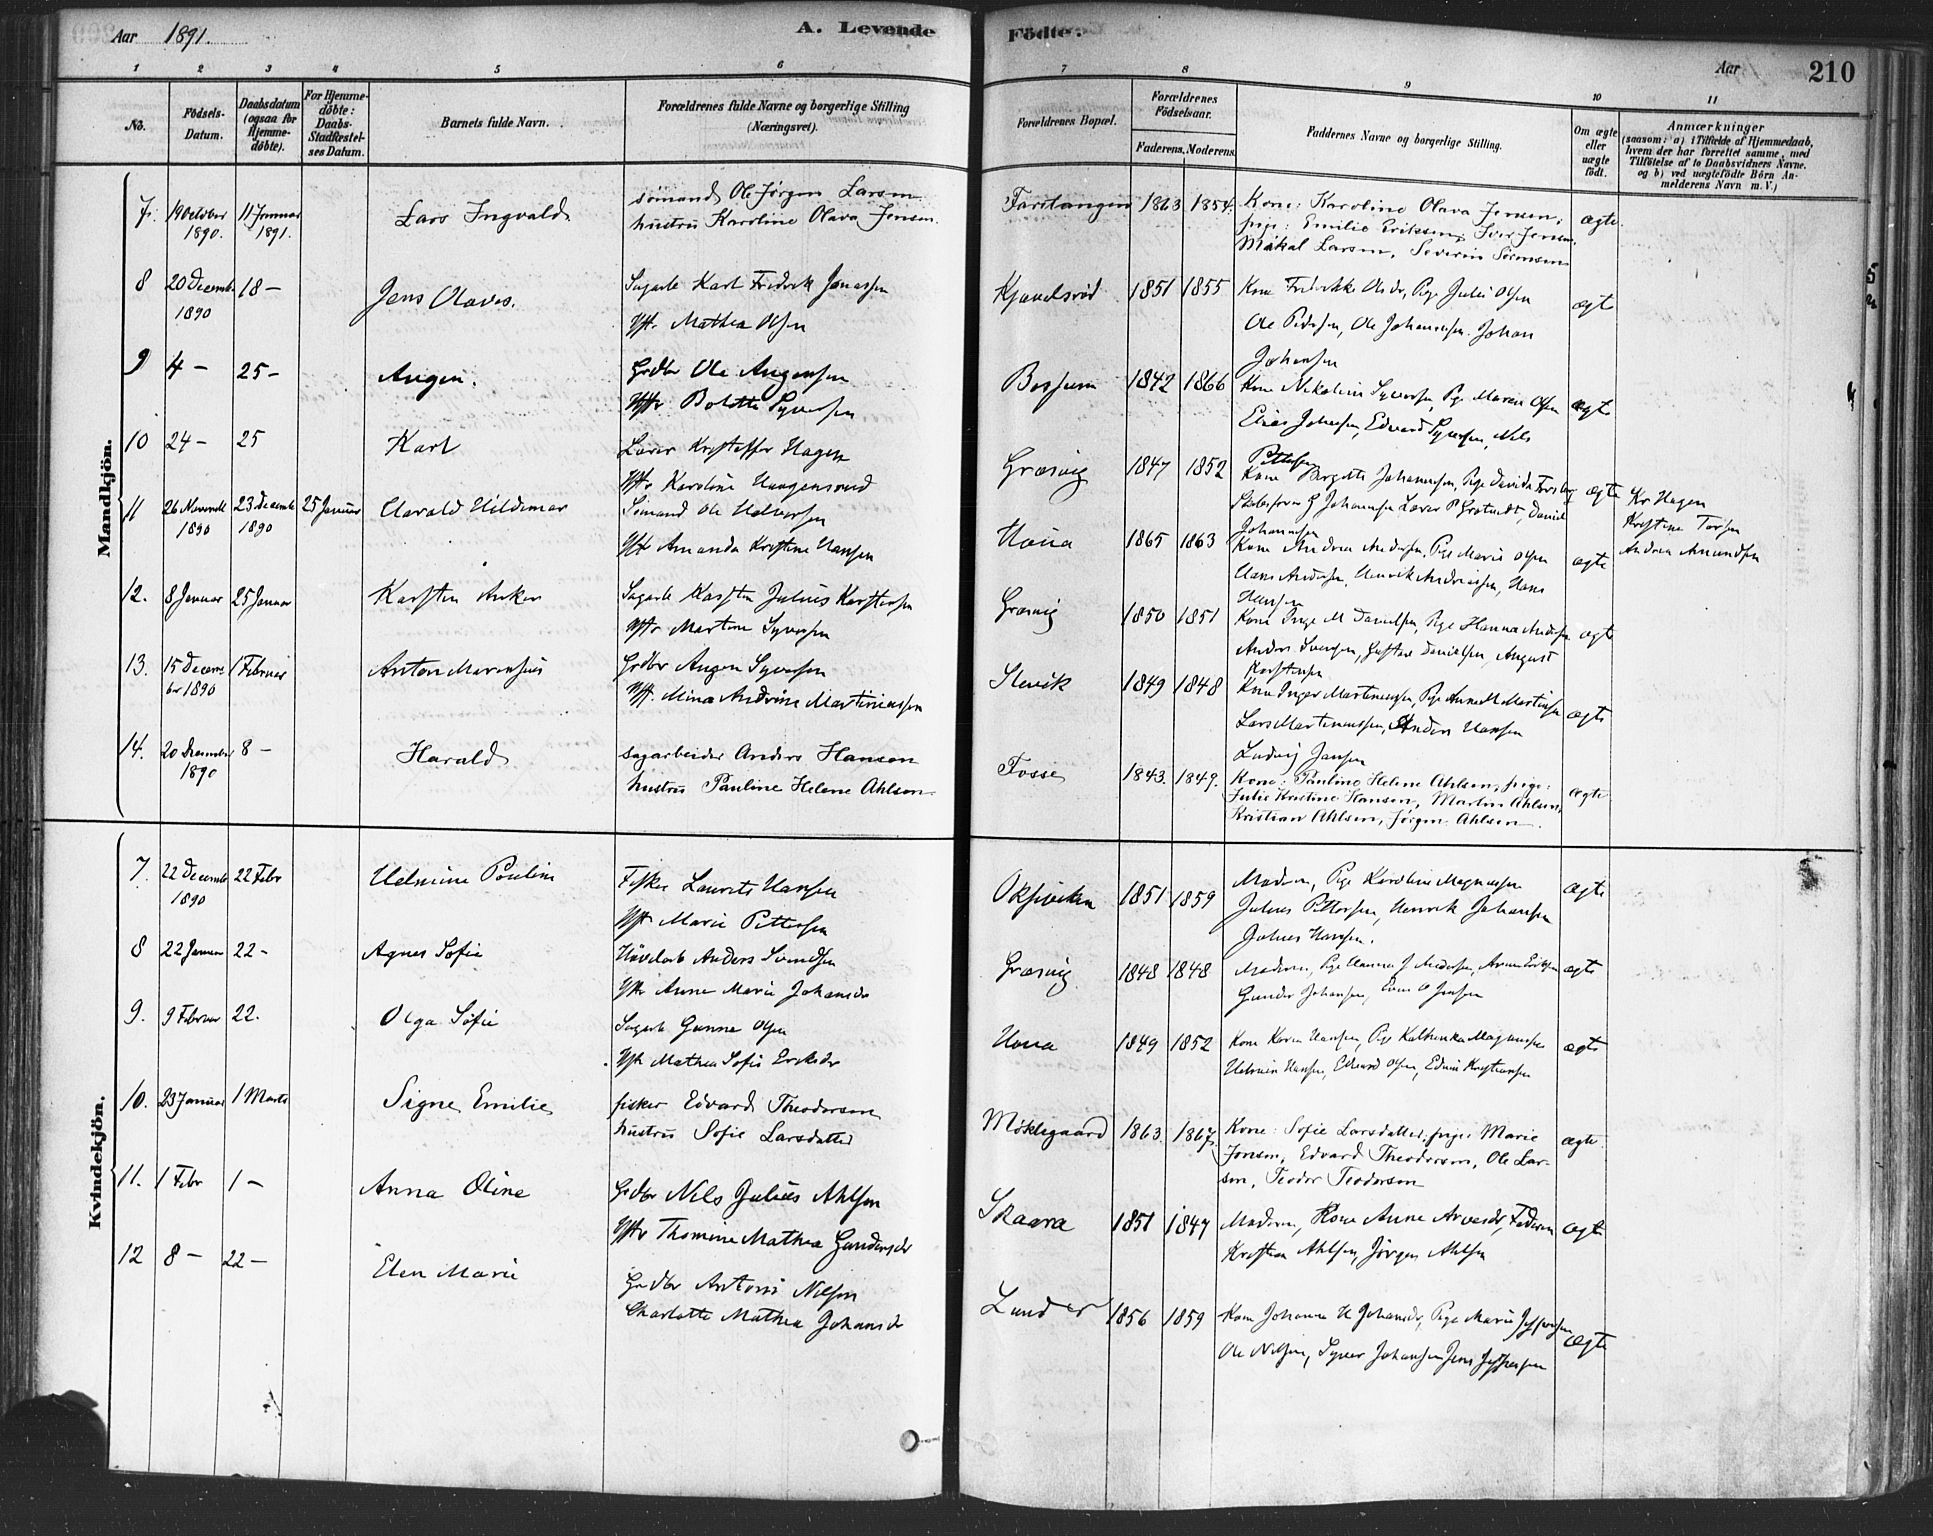 Aar 1891. A. Levende Födte. Aar 210
1 2 3 4 5 6 7 8 9 10 11
No. Födsels-Datum. Daabsdatum (ogsaa for Hjemme-döbte). For Hjemme-döbte: Daabs-Stadfæstel-ses Datum. Barnets fulde Navn. Forældrenes fulde Navne og borgerlige Stilling (Næringsvei). Forældrenes Bopæl. Forældrenes Födselsaar. Faderens. Moderens. Faddernes Navne og borgerlige Stilling. Om ægte eller uægte födt. Anmærkninger (saasom: a) i Tilfælde af Hjemmedaab, hvem der har forrettet samme, med Tilföielse af to Daabsvidners Navne. og b) ved uægtefödte Börn An-melderens Navn m. V.)
Mandkjön.
7. 19 October 1890. 11 Januar 1891. Lars Ingvald sömand Ole Jörgen Larsen
hustru Karoline Olava Jensen. 1863 1854. Kone: Karoline Olava Jensen;
pige: Emilie Eriksen; Iver Jensen,
Mikal Larsen, Severin Sörensen ægte
8 20 Decemb 1890 18 – Jens Olaves. Sagarb Karl Fredrik Jonassen
Hst. Mathea Olsen 1851 1855 Ole Pedersen, Ole Johannessen. Johan
Johansen ægt
9 4 – 25 – Augen. Grdbr Ole Augensen
Hstr Bolette Syversen 1842 1866 Kone Nikoline Syversen, Pge Maren Olsen
Elias Johansen, Edvard Syversen, Nils
Pettersen ægt
10 24 – 25 Karl Lærer Kristoffer Hagen
Hstr Karoline Haagensund Græsvig 1847 1852 Kone Birgitte Johannesen, Pge Davida
Johannesen ægte
11 26 Novemb 1890 23 Decemb 1890 25 Januar Harald Hildemar Sömand Ole Halvorsen
Hst Amanda Kristine Hansen 1865 1863 Kone Andrea Andersen, Pge Marie Olsen
Hans Andersen, Henrik Andreassen, Hans
Hansen ægte Kr Hagen
Kristine
Andrea Amundsen
12. 8 Januar 25 Januar Karsten Anker Sagarb Karsten Julius Karstensen
Hstr Martine Syversen Græsvig 1850 1851 Kone Inge M Danielsen, Pge Hanna Andersen
Anders Svensen, Gustav Danielsen, August
Karstensen ægte
13. 15 Decem-ber 1890 1 Februar Anton Marensius Grdbr Augen Syversen
Hst. Mina Andrine Martiniussen Slevik 1849 1848 Kone Inger Martinussen, Pge Anne M Martinsen
Lars Martinussen, Anders Hansen
Ludvig Jansen ægte
14. 20 December 1890 8 – Harald sagarbeider Anders Hansen
hustru Pauline Helene Ahlsen. Fosse 1843. 1849. Kone: Pauline Helene Ahlsen, pige:
Julie Kristine Hansen, Martin Ahlsen,
Kristian Ahlsen, Jörgen Ahlsen. ægte
Kvindekjön.
7. 22 Decemb 1890 22 Febr Helmine Pauline Fisker Laurits Hansen
Hst Marie Pettersen Oksviken 1851 1859 Moderen, Pge Karoline Magnussen
Julius Pettersen, Henrik Johansen
Julius Hansen. ægte
8 22 Januar 22 – Agnes Sofie Anders Svendsen
Hstr Anne Marie Johansdr Græsvig 1848 1848 Moderen, Pge Hanna J Andersen,
Gunder Johansen, ægte
9. 9 Februar 22. Olga Sofie Sagarb Gunne Olsen
Hst Mathea Sofie Eriksdr 1849 1852 Kone Karen Hansen, Pge Kathinka Magnussen
Helmin Hansen, Edvard Olsen, Edvin Kristiansen ægte
10. 23 Januar 1 Marts Signe Emilie fisker Edvard Theodorsen
hustru Sofie Larsdatter Möklegaard 1863 1867. Kone: Sofie Larsdatter; pige: Marie
Jensen, Edvard Theodorsen, Ole Lar-
sen, Teodor Teodorsen ægte
11. 1 Febr 1 – Anna Oline Grdbr Nils Julius Ahlsen
Hstr Thomine Mathea Gundersdr Skaara 1851 1847 Moderen, Kone Anne Arvesdr, Faderen
Kristian Ahlsen, Jörgen Ahlsen ægte
12 8 – 22 – Elen Marie Grdbr Antoni Nilsen
Charlotte Mathea Johansdr 1856 1859 Kone Johanne H Johansdr, Pige Marie Jespersen
Ole Nilsen, Syver Johansen Jens Jespersen ægte